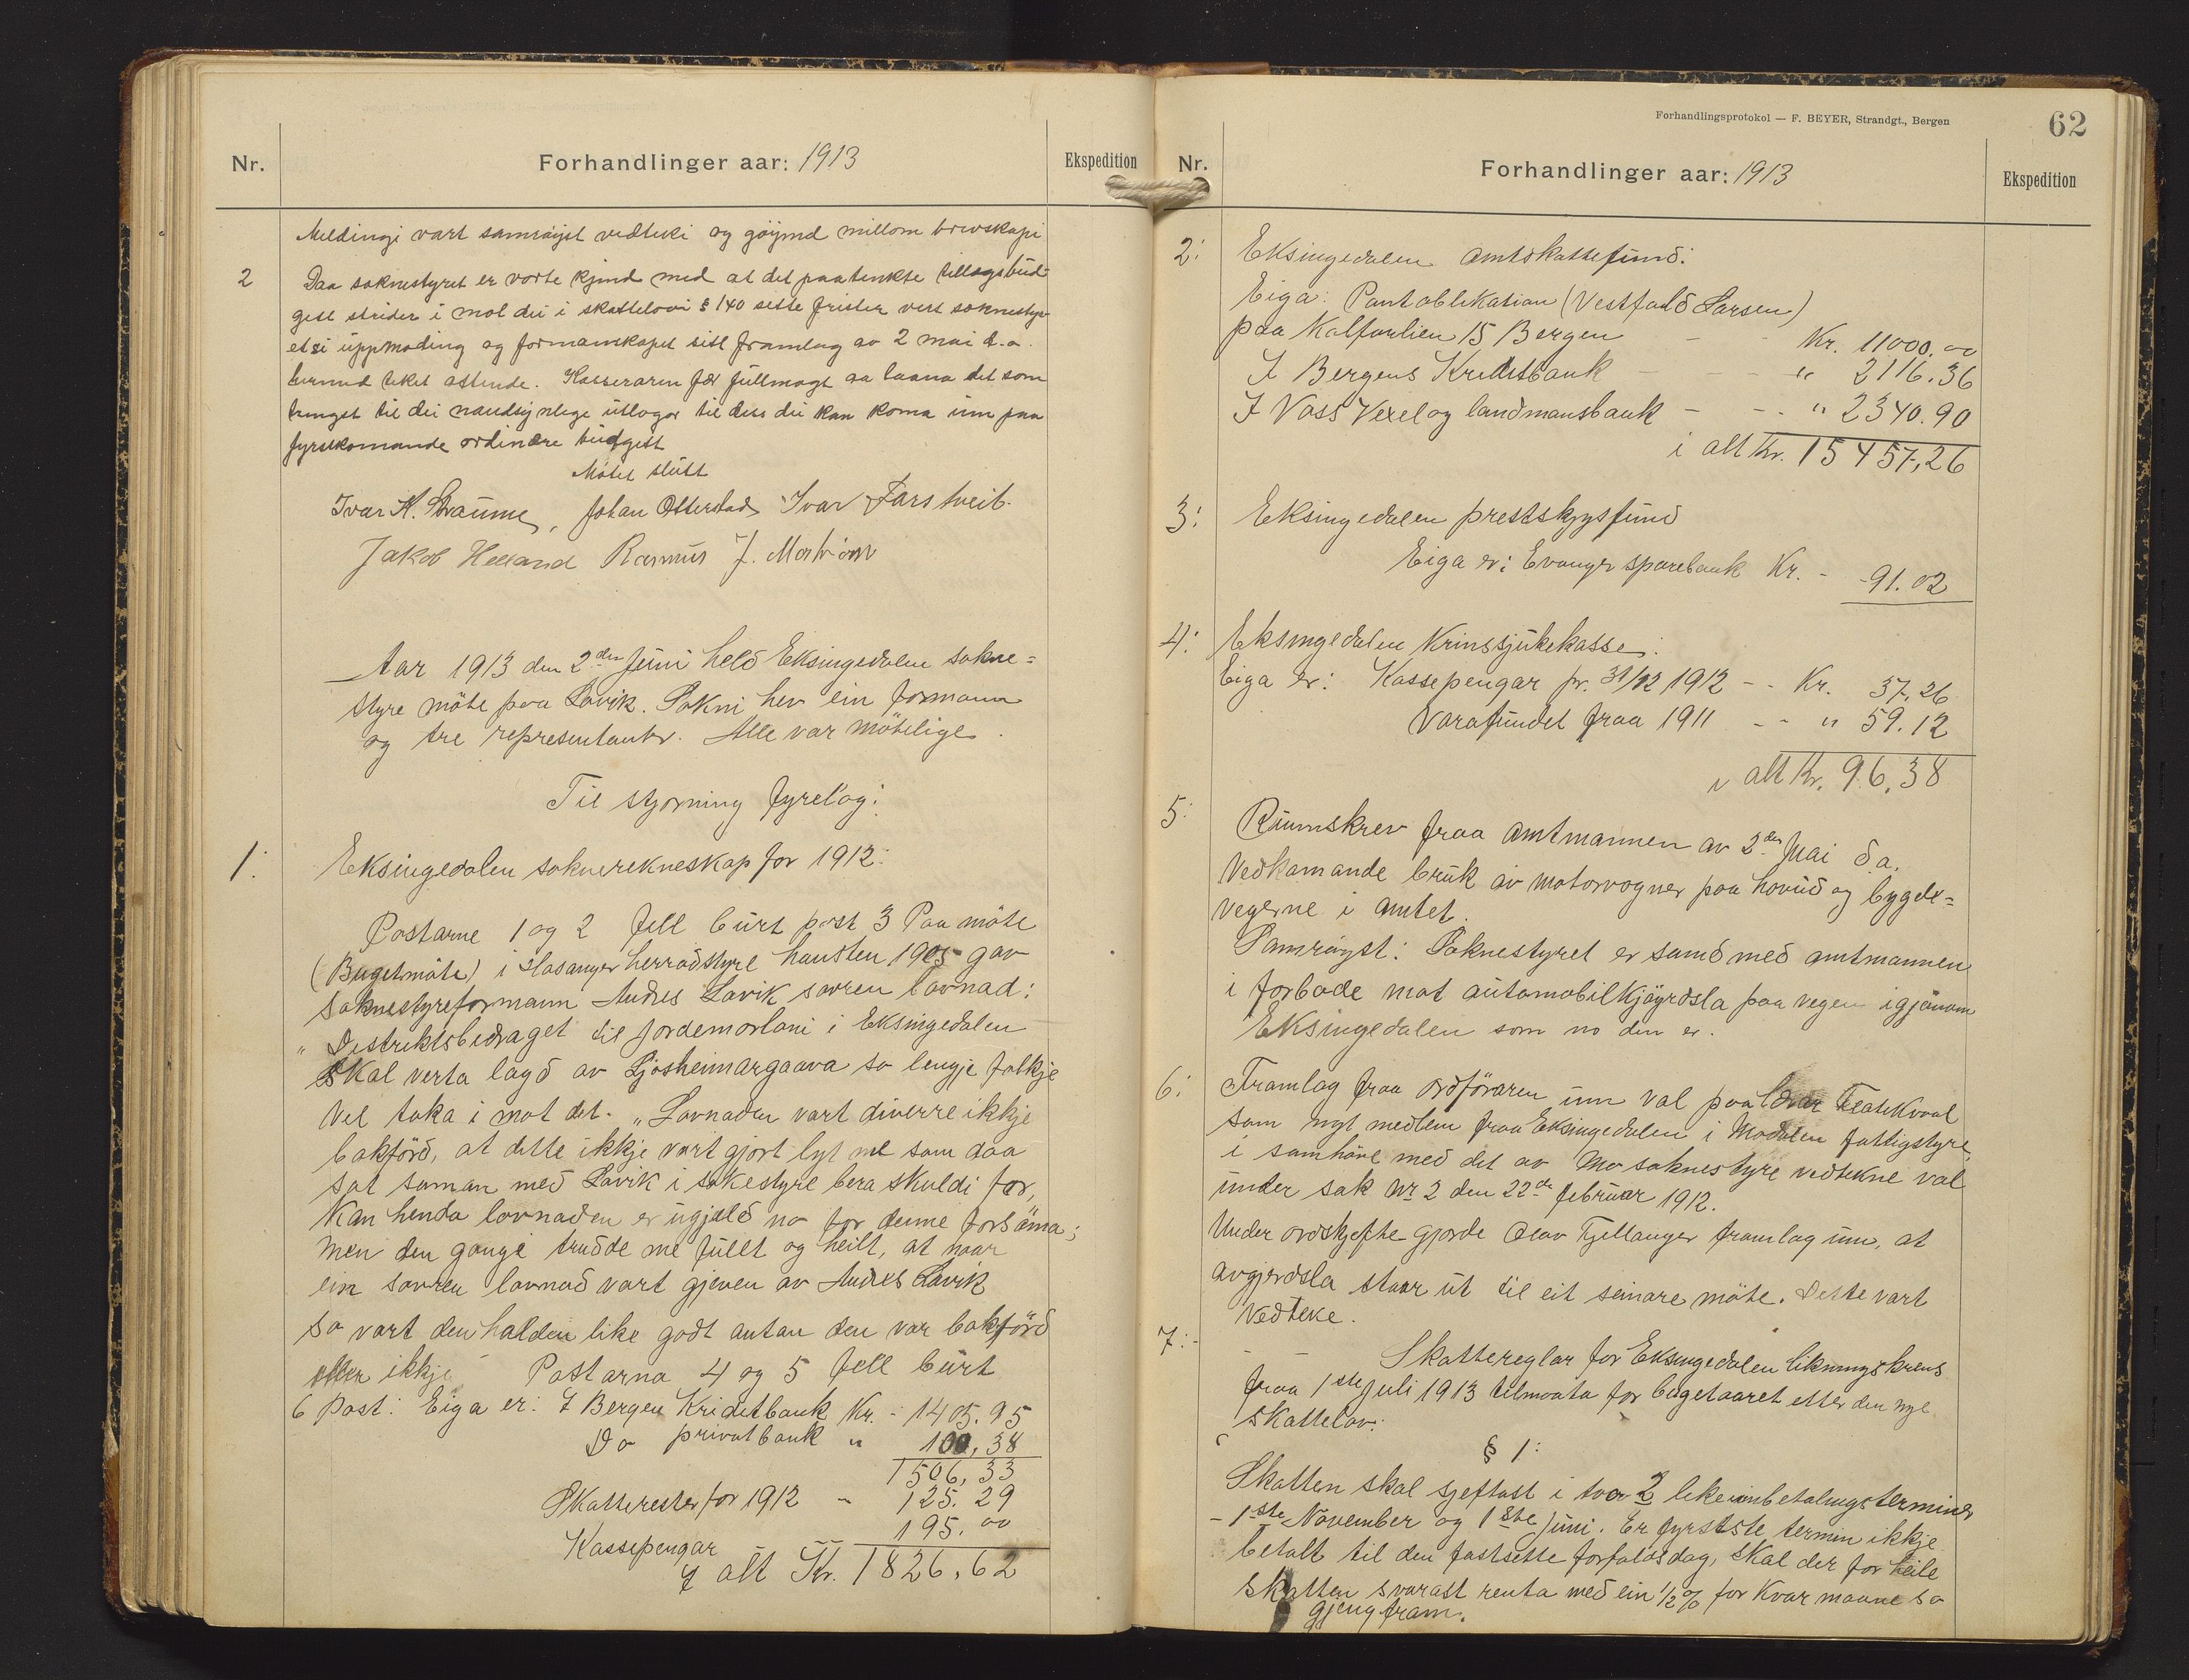 Nr.
Forhandlinger aar: 1913
Ekspedition
Meldingi vart samröyst vedteki og göymd millom brevskapi
2 Daa soknestyret er vorte kjend med at det paatenkte tillegsbud-
gett strider i mot dei i skattelovi § 140 sette frister vert soknesty-
etsi uppmoding og formanskapet sitt framlag av 2 mai d.a.
hermed teket attende. Kasseraren fær fullmagt aa laana det som
trengst til dei naudsynlege utlogor til dess dei kan koma inn paa
fyrstkomande ordinære budgett
Mötet slutt
Ivar K. Straume, Johan Otterstad Ivar Farstveit.
Jakob Helland Rasmus J.
Aar 1913 den 2den Juni held Eksingedalen sokne=
styre möte paa Lavik. Sokni hev ein formann
og tre representantar. Alle var mötelige.
Til styrning fyrelog:
1: Eksingedalen soknerekneskap for 1912:
Postarne 1 og 2 fell burt post 3 Paa möte
(Bugetmöte) i Hosanger herradstyre hausten 1905 gav
soknestyreformann Andres Lavik sovren lovnad:
" Distriktsbidraget til jordemorlöni i Eksingedalen
skal verta lagd av Ljosheimargaava so lengje folkje
vel taka i mot det. " Lovnaden vart diverre ikkje
bokförd, at dette ikkje vart gjort lyt me som daa
sat saman med Lavik i sokestyre bera skuldi for,
Kan henda lovnaden er ugjeld no for denne forsöma;
men den gongi trudde me fullt og heilt, at naar
ein sovren lovnad vart gjeven av Andres Lavik
so vart den halden like godt antan den var bokförd
eller ikkje Postarna 4 og 5 fell burt
6 Post: Eiga er: I Bergen Kriditbank Kr. - 1405.95
Do privatbank " 100,38
1506,33
Skatterester for 1912 - 125.29
Kassepengar -- 195.00
I alt Kr. 1826.62
Forhandlingsprotokol — F. BEYER, Strandgt., Bergen
62
Nr.
Forhandlinger aar: 1913
Ekspedition
2: Eksingedalen amtskattefund:
Eiga: Pantoblikation (Vestfald Larsen)
paa Kalfarlien 15 Bergen - - Kr. 11000.00
I Bergens Kreditbank - - - " 2116.36
I Voss Vexel og landmansbank - - - " 2340.90
i alt Kr. 15457,26
3: Eksingedalen prestskyssfund
Eiga er: Evanger sparebank Kr. - -91.02
4: Eksingedalen Krinssjukekasse:
Eiga er: Kassepengar pr. 31/12 1912 - - Kr. 37,26
Varafundet fraa 1911 - - " 59.12
i alt Kr. 96,38
5: Rundskrev fraa amtmannen av 2den Mai d.a.
Vedkamande bruk av motorvogner paa hovud og bygde=
vegerne i amtet.
Samröyst: Soknestyret er samd med amtmannen
i forbode mot automobilkjöyrdsla paa vegen igjönom
Eksingedalen som no den er.
6: Framlag fraa ordföraren um val paa Flatekvaal
som nyt medlem fraa Eksingedalen i Modalen fattigstyre,
i samhöve med det av Mo soknestyre vedtekne val
under sak Nr 2 den 22de februar 1912.
Under ordskjefte gjorde Olav Fjellanger framlag um, at
avgjerdsla staar ut til eit seinare möte. Dette vart
vedteke.
7: - - Skattereglar for Eksingedalen likningskrins
fraa 1ste Juli 1913 tilmaata for bugetaaret etter den nye
skattelov:
§ 1:
Skatten skal sjeftast i tvo 2 like innbetalingsterminer
- 1ste November og 1ste Juni. Er fyrstste termin ikkje
betalt til den fastsette forfalsdag, skal der for heile
skatten svarast renta med ein 1/2 % for kvar maane so
gjeng fram.